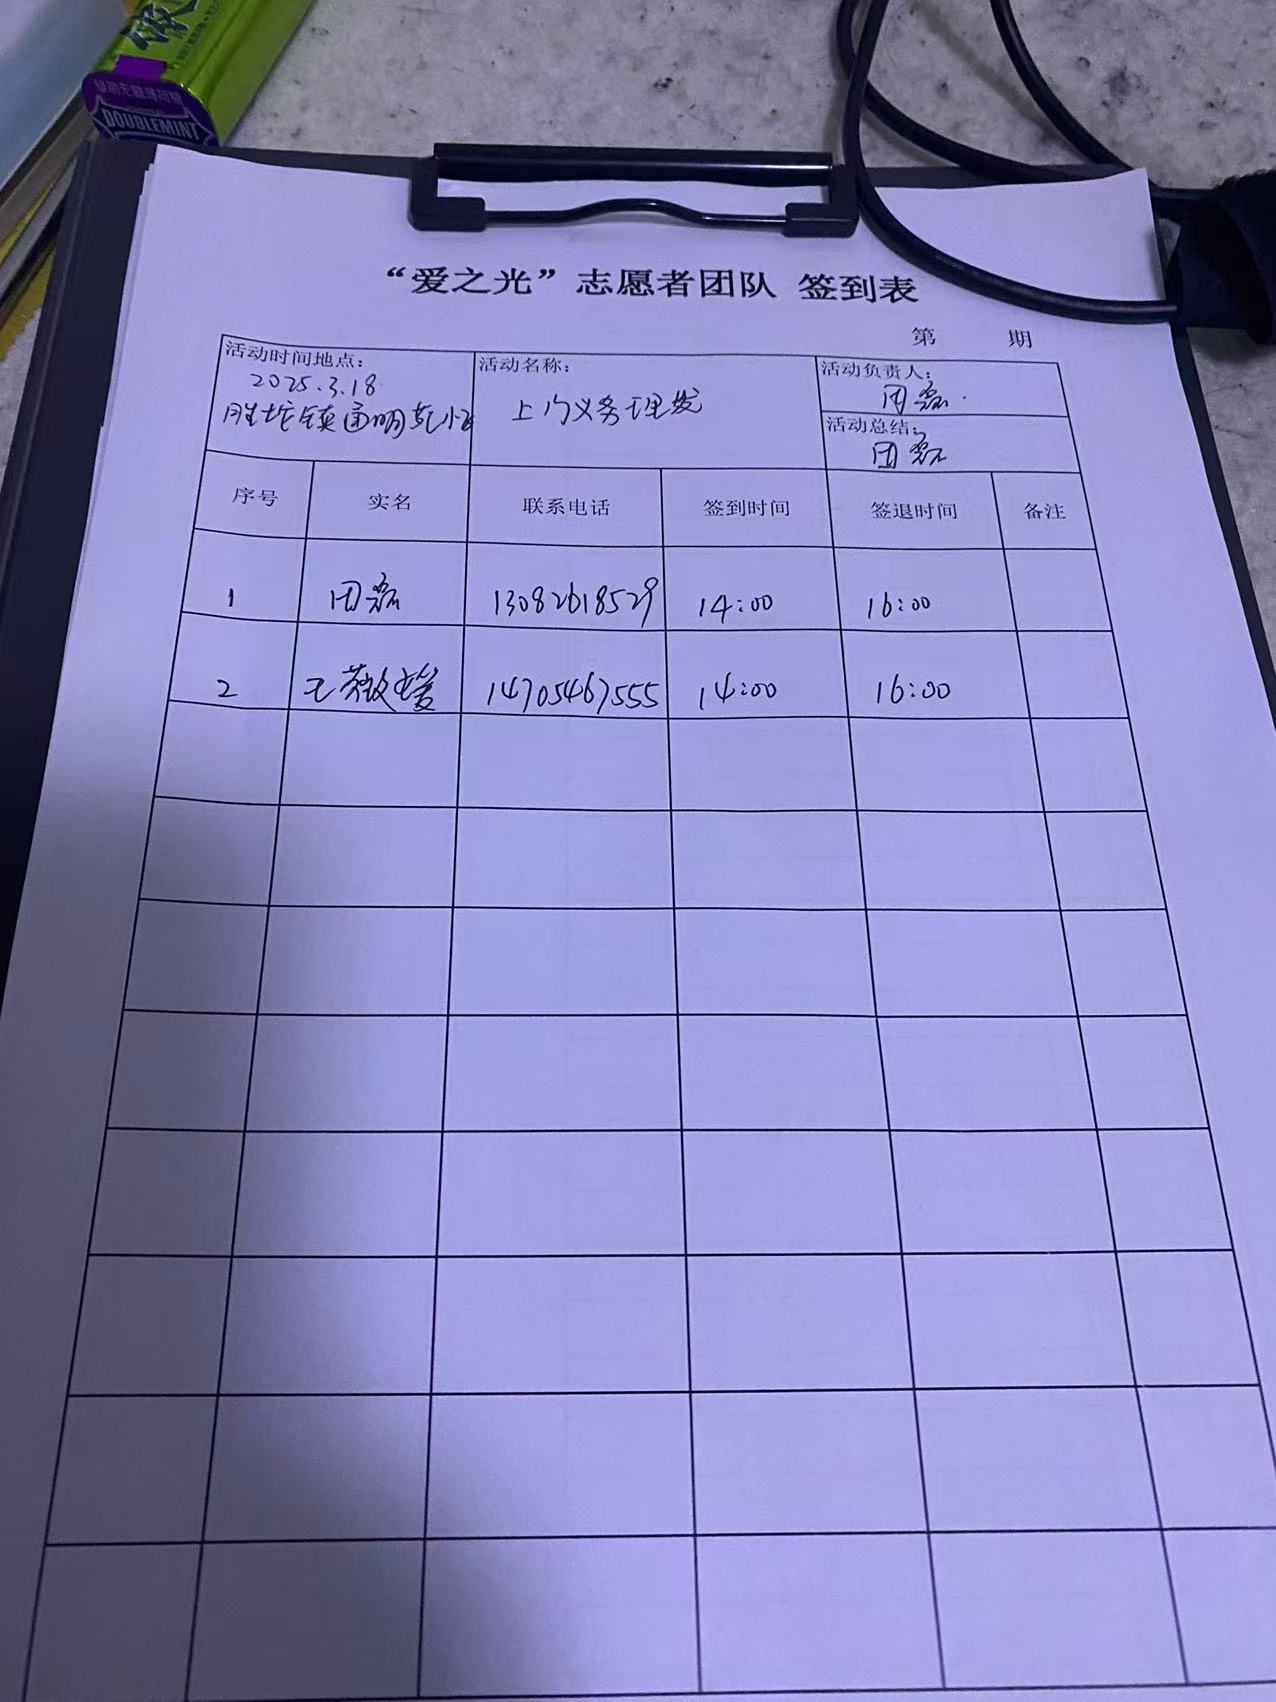 DOUBLEMINT
“爱之光”志愿者团队 签到表
第 期
活动时间地点： 活动名称： 活动负责人：
2025.3.18 田磊
胜坨镇通明 上门义务理发
活动总结：
田磊
序号 实名 联系电话 签到时间 签退时间 备注
1 田磊 13082618529 14:00 16:00
2 王薇媛 14705467555 14:00 16:00